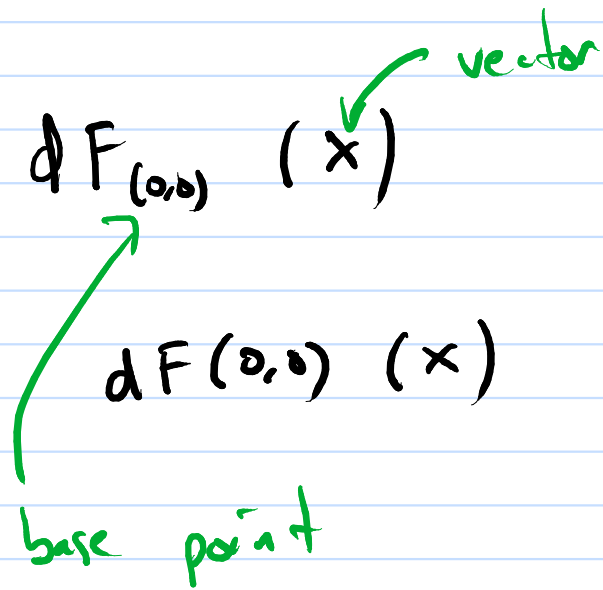 vector
dF₍₀,₀₎ (x)
dF(0,0) (x)
base point